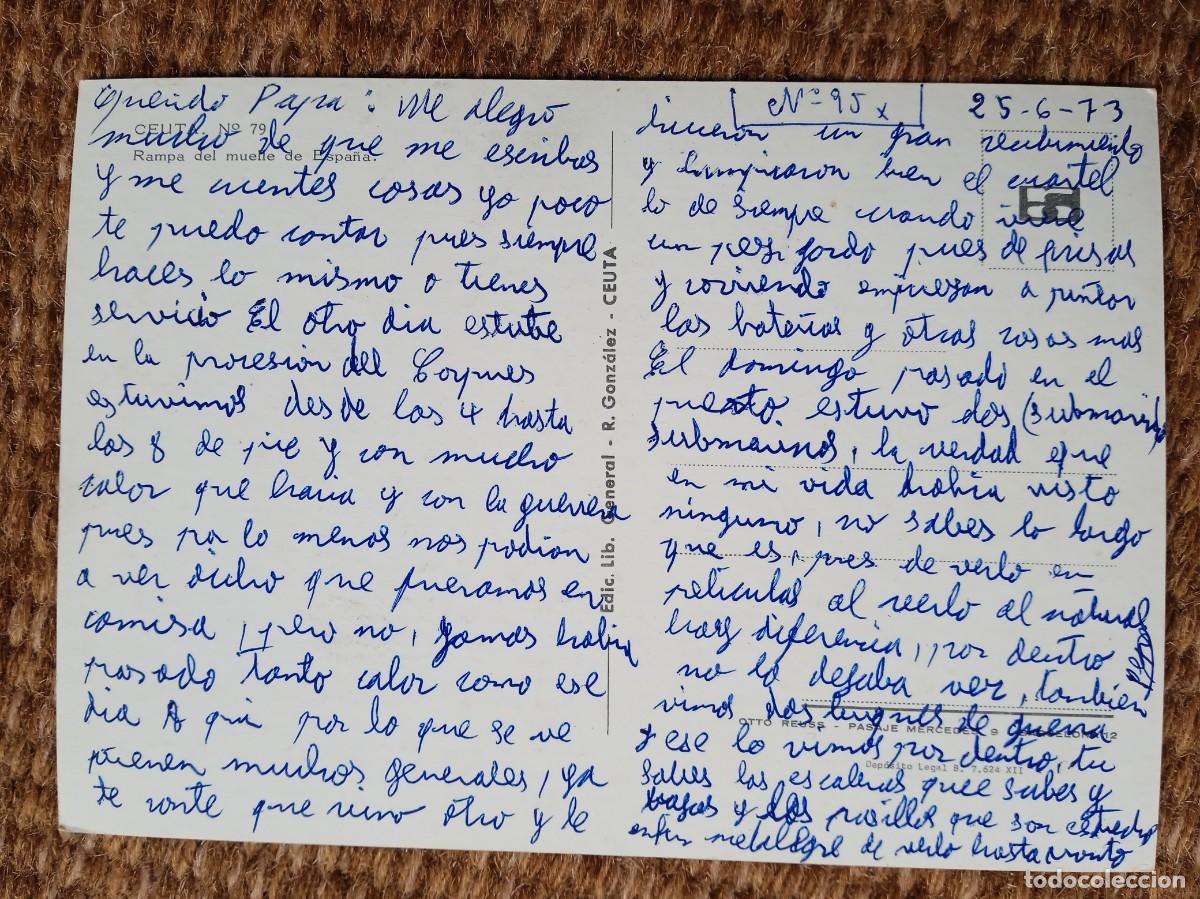 Querido Papa: Me alegro
CEUTA. Nº 79
mucho de que me escribas
Rampa del muelle de España.
y me cuentes cosas yo poco
te puedo contar pues siempre
haces lo mismo o tienes
servicio El otro dia estube
en la procesion del Corpues
estuvimos desde las 4 hasta
las 8 de pie y con mucho
calor que hacia y con la guerrera
pues por lo menos nos podian
a ver dicho que fueramos en
camisa, pero no, jamas habia
pasado tanto calor como ese
dia Aqui por lo que se ve
vienen muchos generales, ya
te conte que vino otro y le
Edic. Lib. General - R. González - CEUTA
Nº 95 x
25-6-73
hicieron un gran recibimiento
y limpiaron bien el cuartel
lo de siempe cuando viene
un pez gordo pues de prisas
y corriendo empiezan a pintar
las baterias y otras cosas mas
El domingo pasado en el
puerto estuvo dos (submarinos
submarinos, la verdad es que
en mi vida habia visto
ninguno, no sabes lo largo
que es, pues de verlo en
peliculas al verlo al natural
hay diferencia, por dentro
no lo dejaba ver, tambien
vimos dos buques de guerra
OTTO REUSS - PASAJE MERCEDES 9 BARCELONA-12
y ese lo vimos por dentro, tu
Depósito Legal B. 7.624 XII
sabes las escaleras que subes y
bajas y los pasillos que son estrechos
enfin me alegre de verlo hasta pronto
todocoleccion